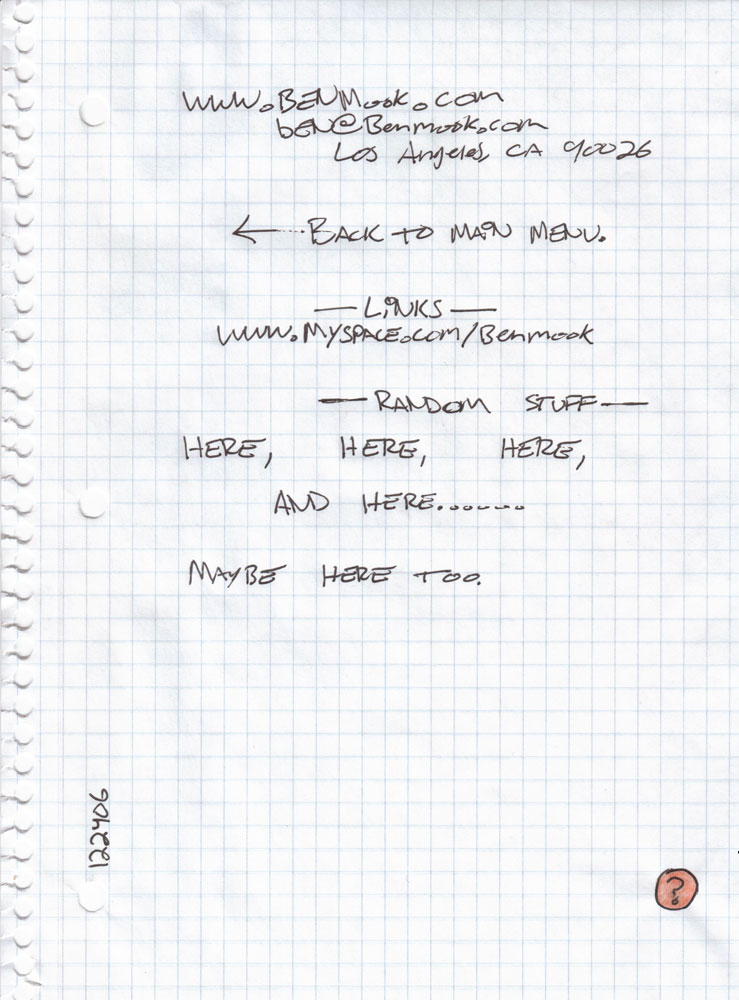 www.BENMook.com
bEN@Benmook.com
Los Angeles, CA 90026
← BACK TO MAIN MENU.
— LiNKS —
www.MYSPACE.com/Benmook
— RANDOM STUFF —
HERE, HERE, HERE,
AND HERE.......
MAYBE HERE TOO.
122406
?